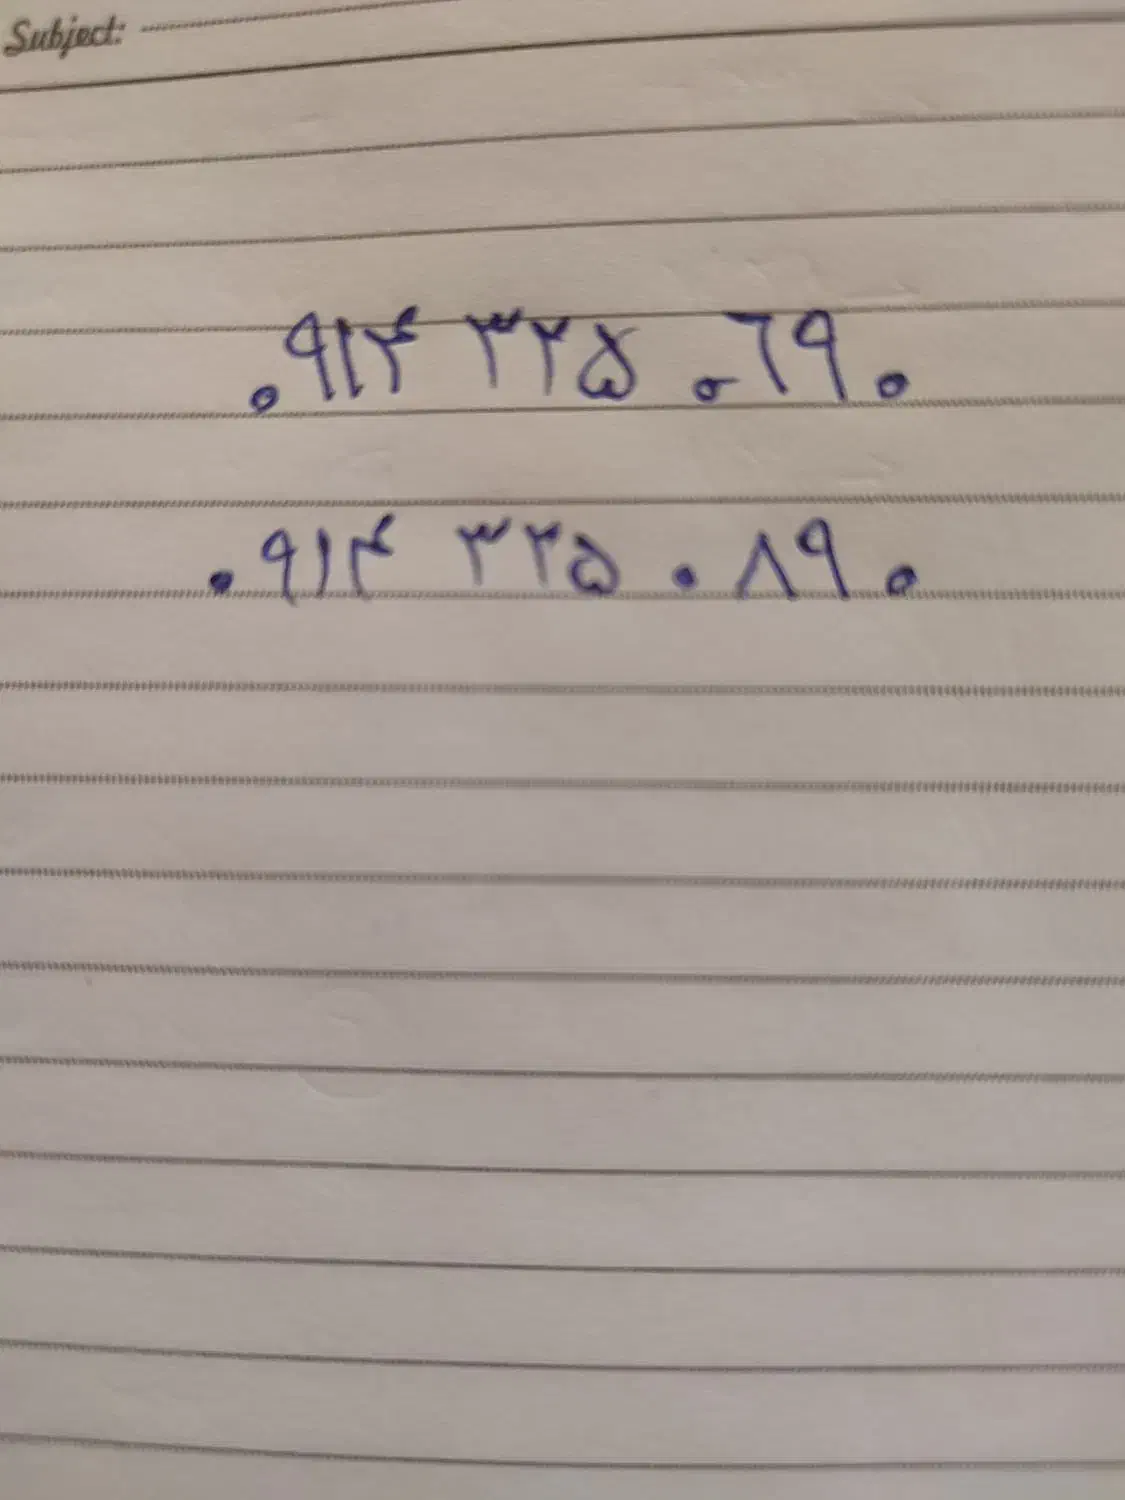 Subject:
۰۹۱۴ ۳۲۵ ۰۶۹۰
۰۹۱۴ ۳۲۵ ۰۸۹۰